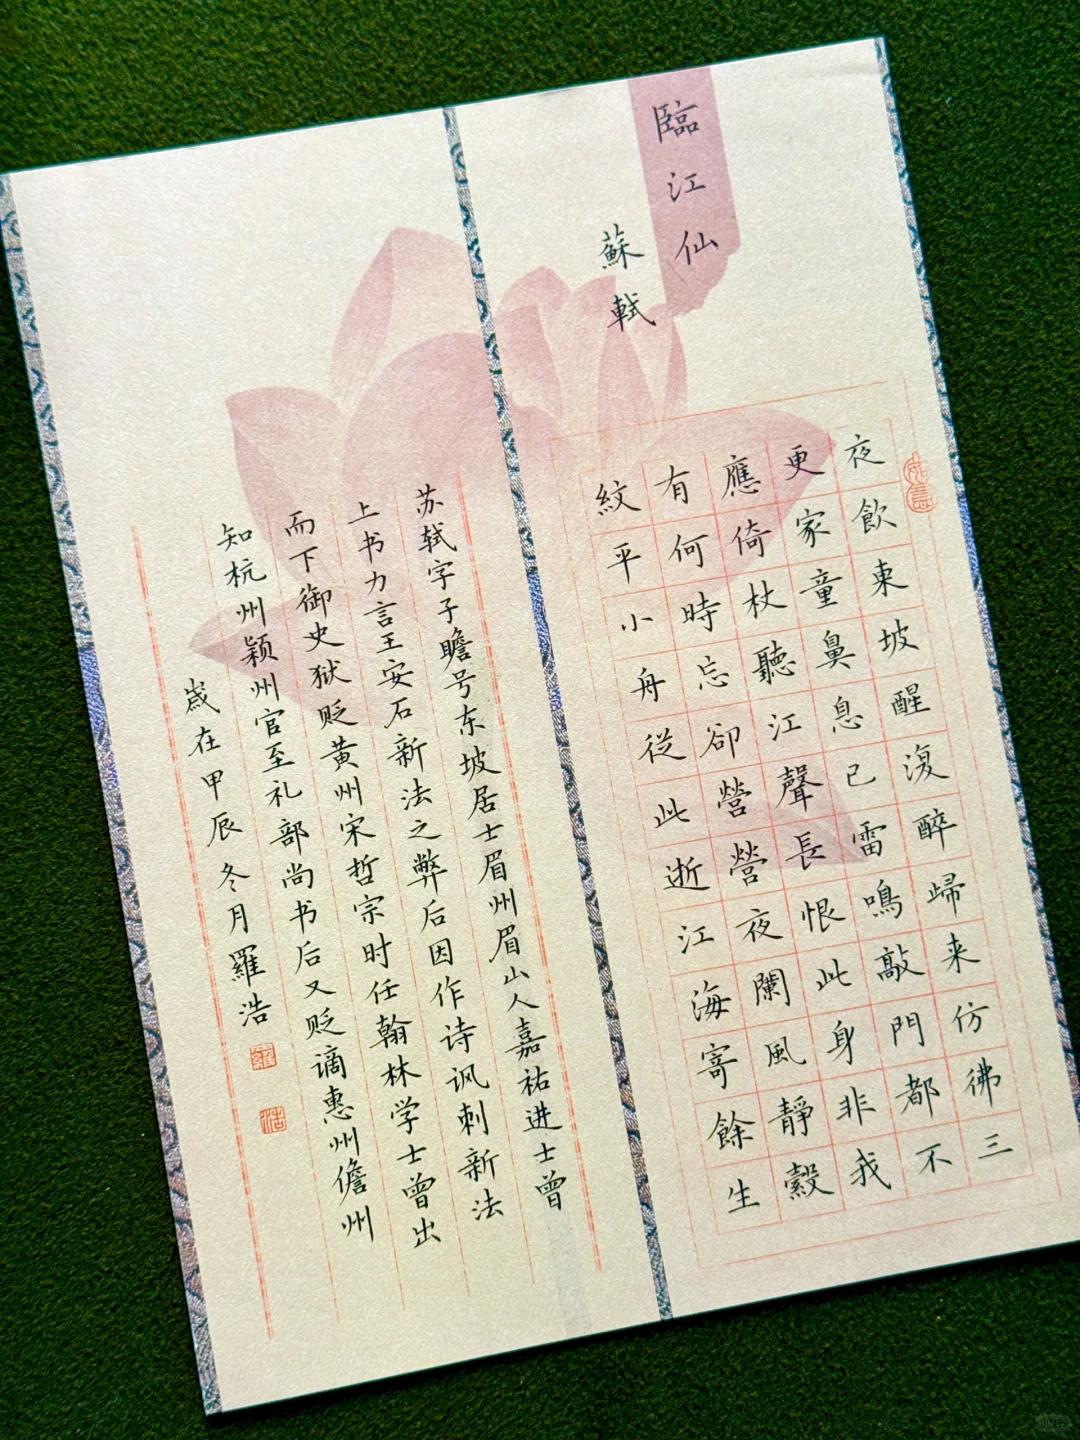 臨江仙
蘇軾
夜飲東坡醒復醉歸来仿彿三
更家童鼻息已雷鳴敲門都不
應倚杖聽江聲長恨此身非我
有何時忘卻營營夜闌風靜縠
紋平小舟從此逝江海寄餘生
苏轼字子瞻号东坡居士眉州眉山人嘉祐进士曾
上书力言王安石新法之弊后因作诗讽刺新法
而下御史狱贬黄州宋哲宗时任翰林学士曾出
知杭州颖州官至礼部尚书后又贬谪惠州儋州
岁在甲辰冬月羅浩
羅
浩